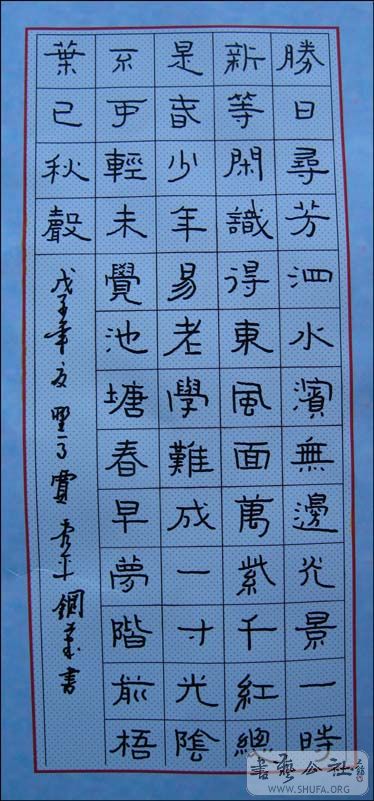 勝日尋芳泗水濱無邊光景一時
新等閑識得東風面萬紫千紅總
是春少年易老學難成一寸光陰
不可輕未覺池塘春早夢階前梧
葉已秋聲
戊子年夏 鋼筆書
書藝公社
WWW.SHUFA.ORG